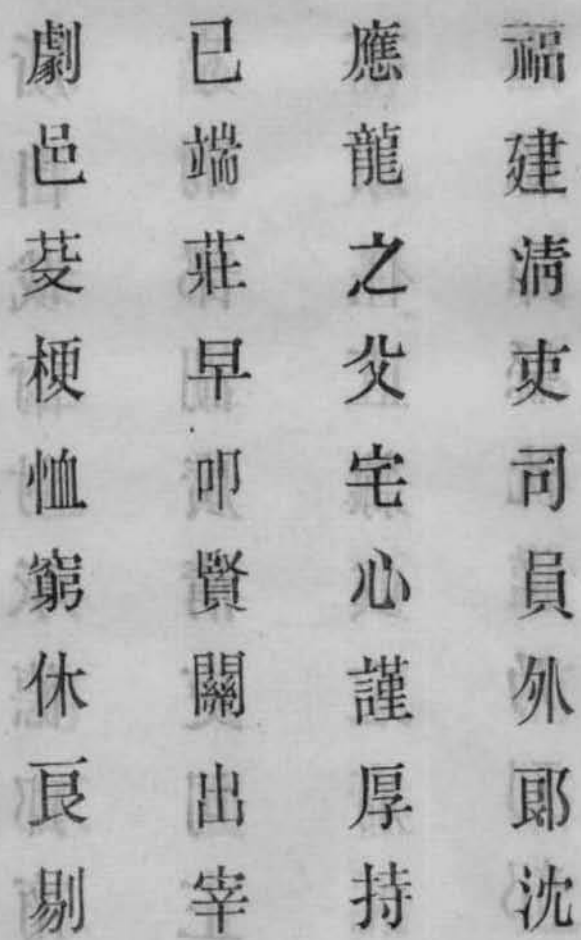 福建淸吏司員外郞沈
應龍之父宅心謹厚持
已端莊早叩賢關出宰
劇邑芟梗恤窮休良剔